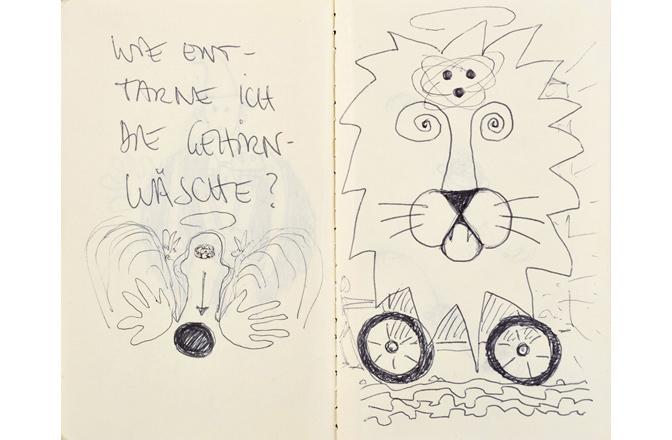 WIE ENT-
TARNE ICH
DIE GEHIRN-
WÄSCHE?